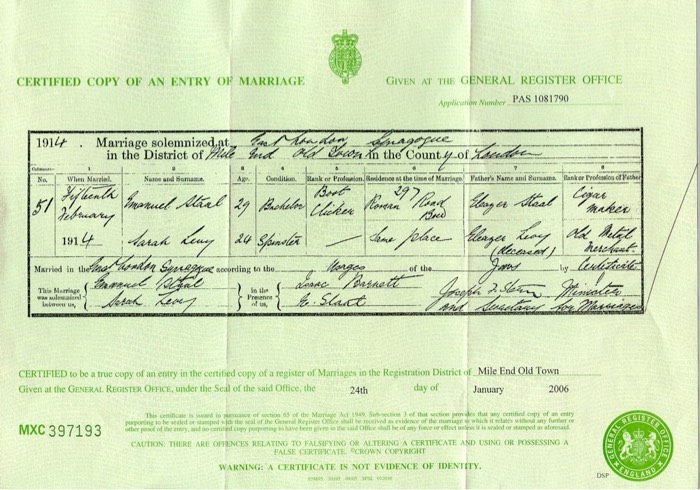 CERTIFIED COPY OF AN ENTRY OF MARRIAGE
GIVEN AT THE GENERAL REGISTER OFFICE
Application Number PAS 1081790
1914. Marriage solemnized at East London Synagogue
in the District of Mile End Old Town in the County of London
Columns:— 1 2 3 4 5 6 7 8
No. When Married. Name and Surname. Age. Condition. Rank or Profession. Residence at the time of Marriage. Father's Name and Surname. Rank or Profession of Father
51 Fifteenth February 1914
Emanuel Staal 29 Bachelor Boot Clicker 297 Roman Road Bow Eleazer Staal Cigar maker
Sarah Levy 24 Spinster — Same place Eleazer Levy (deceased) Old Metal Merchant
Married in the East London Synagogue according to the Usages of the Jews by Certificate
This Marriage was solemnized between us,
Emanuel Staal
Sarah Levy
in the Presence of us,
Isaac Barnett
Joseph F. Stern Minister
and Secretary for Marriages
CERTIFIED to be a true copy of an entry in the certified copy of a register of Marriages in the Registration District of Mile End Old Town
Given at the GENERAL REGISTER OFFICE, under the Seal of the said Office, the 24th day of January 2006
MXC 397193
This certificate is issued in pursuance of section 65 of the Marriage Act 1949. Sub-section 3 of that section provides that any certified copy of an entry
purporting to be sealed or stamped with the seal of the General Register Office shall be received as evidence of the marriage to which it relates without any further or
other proof of the entry, and no certified copy purporting to have been given in the said Office shall be of any force or effect unless it is sealed or stamped as aforesaid.
CAUTION: THERE ARE OFFENCES RELATING TO FALSIFYING OR ALTERING A CERTIFICATE AND USING OR POSSESSING A
FALSE CERTIFICATE. ©CROWN COPYRIGHT
WARNING: A CERTIFICATE IS NOT EVIDENCE OF IDENTITY.
GENERAL REGISTER OFFICE
ENGLAND
DSP